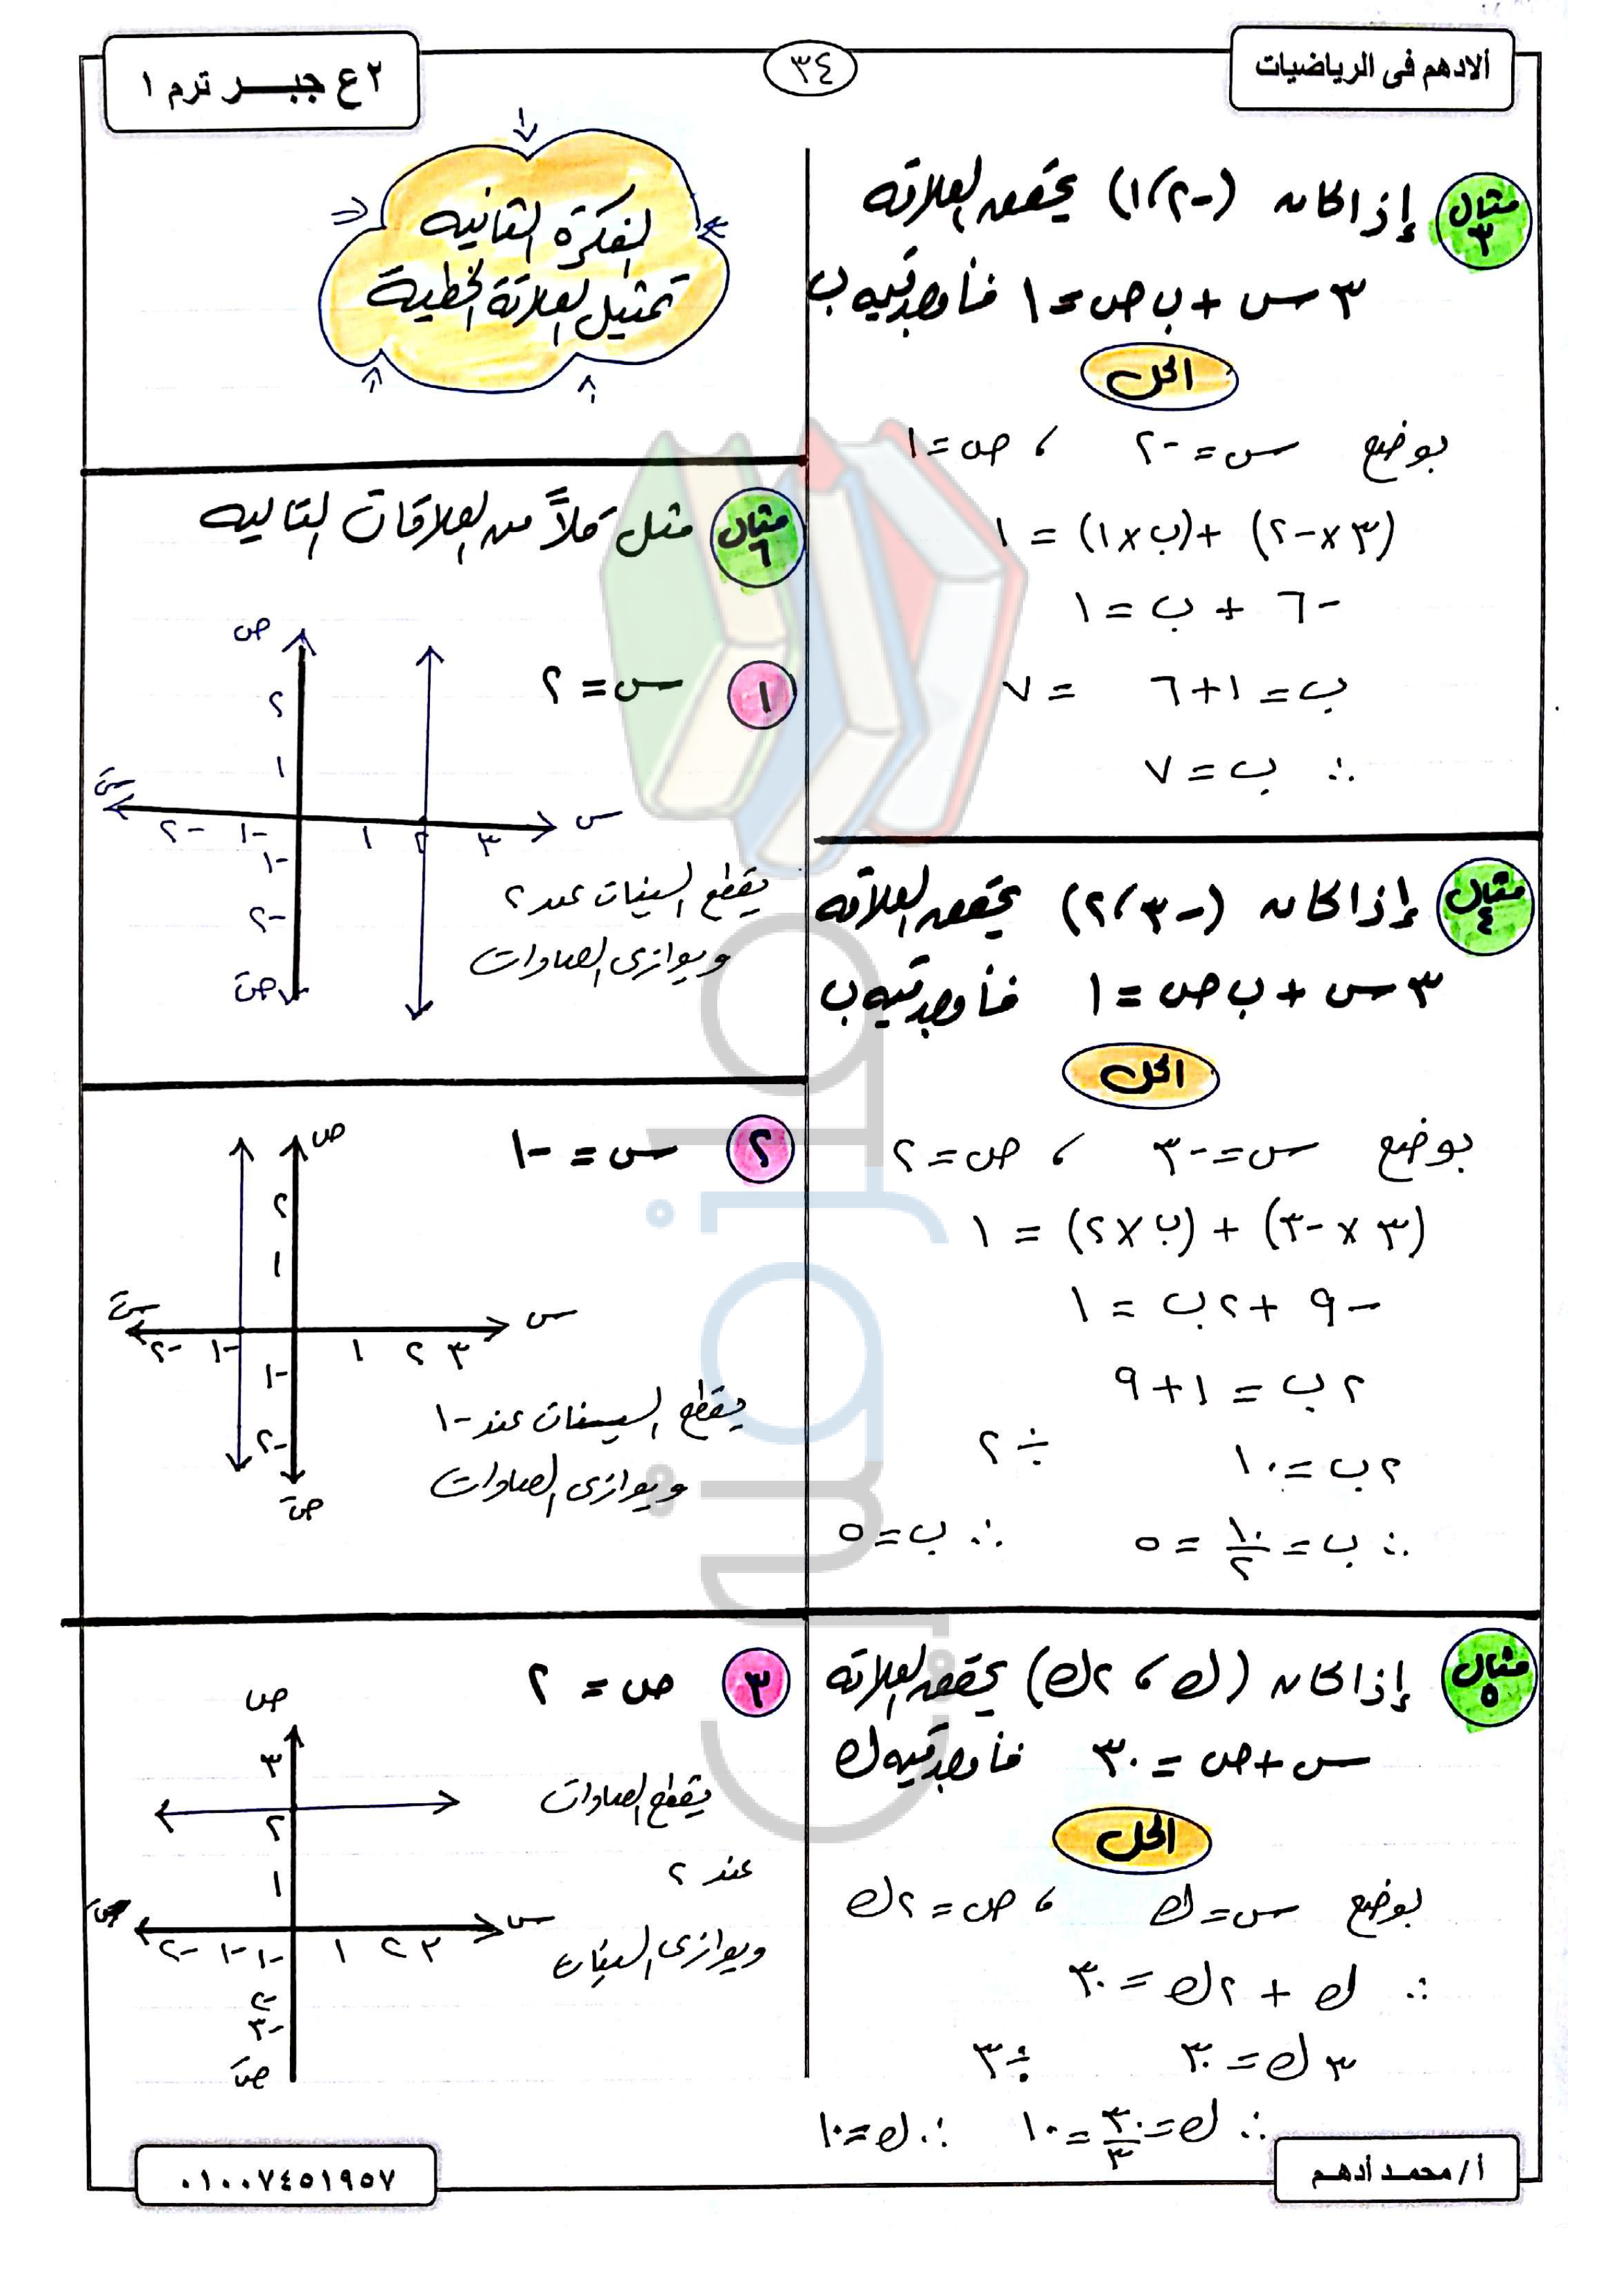 ألادهم فى الرياضيات
٣٤
٢ع جبـــر ترم ١
مثال ٣
إذا كان (-٢، ١) يحقق العلاقة
٣س + ب ص = ١ فأوجد قيمة ب
الحل
بوضع س = -٢ ، ص = ١
(٣ × -٢) + (ب × ١) = ١
-٦ + ب = ١
ب = ١ + ٦ = ٧
∴ ب = ٧
مثال ٤
إذا كان (-٣، ٢) يحقق العلاقة
٣س + ب ص = ١ فأوجد قيمة ب
الحل
بوضع س = -٣ ، ص = ٢
(٣ × -٣) + (ب × ٢) = ١
-٩ + ٢ب = ١
٢ب = ١ + ٩
٢ب = ١٠ ÷ ٢
∴ ب = ١٠/٢ = ٥ ∴ ب = ٥
مثال ٥
إذا كان (ك ، ٢ك) يحقق العلاقة
س + ص = ٣٠ فأوجد قيمة ك
الحل
بوضع س = ك ، ص = ٢ك
∴ ك + ٢ك = ٣٠
٣ك = ٣٠ ÷ ٣
∴ ك = ٣٠/٣ = ١٠ ∴ ك = ١٠
الفكرة الثانية
تمثيل العلاقة الخطية
مثال ٦
مثل كلاً من العلاقات التالية
١ س = ٢
ص
٢
١
سَ
-٢ -١ ١ ٢ ٣ س
-١
-٢
صَ
يقطع السينات عند ٢
ويوازى الصادات
٢ س = -١
ص
٢
١
سَ
س
-٢ -١ ١ ٢ ٣
-١
-٢
صَ
يقطع السينات عند -١
ويوازى الصادات
٣ ص = ٢
ص
٣
٢
١
س
-٢ -١ -١ ١ ٢ ٣
-٢
-٣
صَ
يقطع الصادات
عند ٢
ويوازى السينات
أ/ محمد أدهم
٠١٠٠٧٤٥١٩٥٧